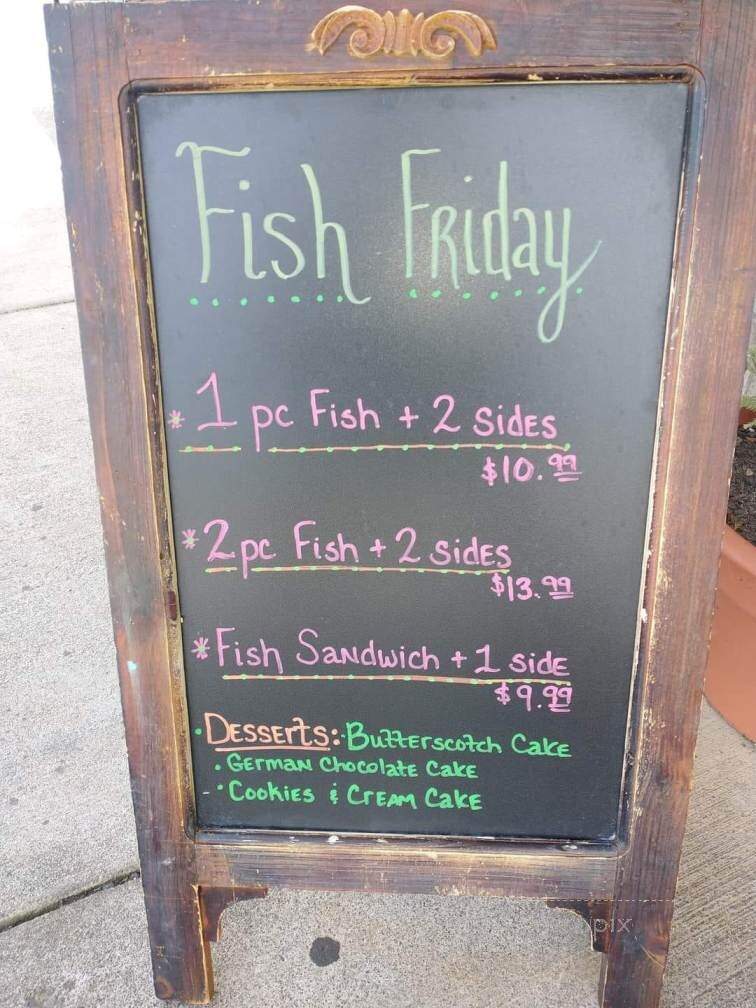 Fish Friday
* 1 pc Fish + 2 Sides
$10.99
* 2 pc Fish + 2 Sides
$13.99
* Fish Sandwich + 1 Side
$9.99
· Desserts: · Butterscotch Cake
· German Chocolate Cake
· Cookies & Cream Cake
pix